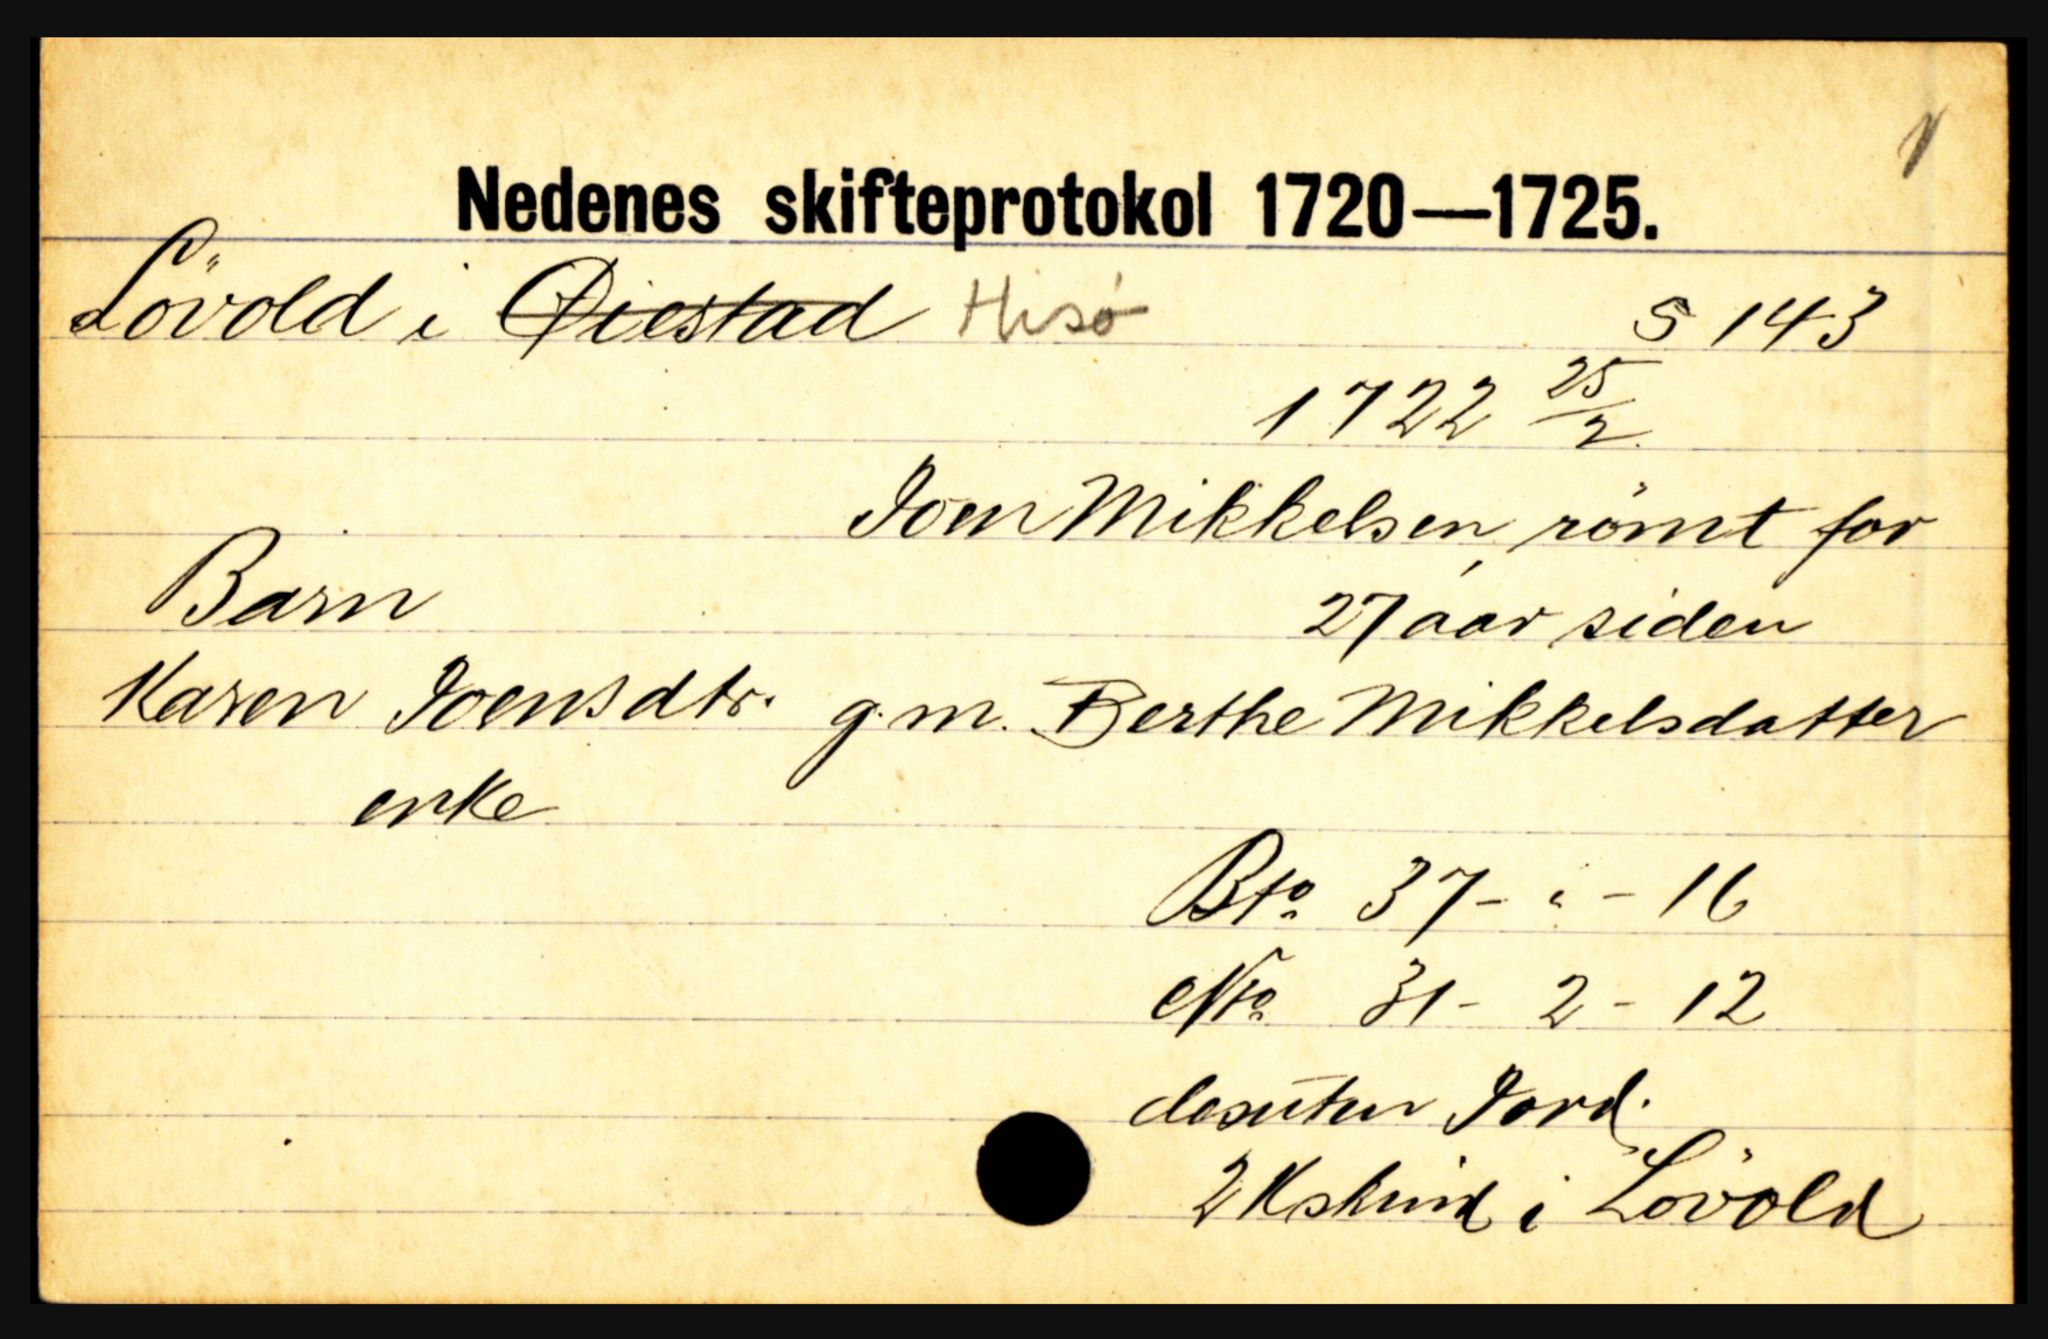 Nedenes skifteprotokol 1720—1725.
Lövold i Øiestad Hisø S 143
1722 25/2
Joen Mikkelsen, römt for
Barn 27 aar siden
Karen Joensdtr. g.m. Berthe Mikkelsdatter
enke
Bto 37 - " - 16
Nto 31 - 2 - 12
desuten Jord.
2 Kskind i Lövold